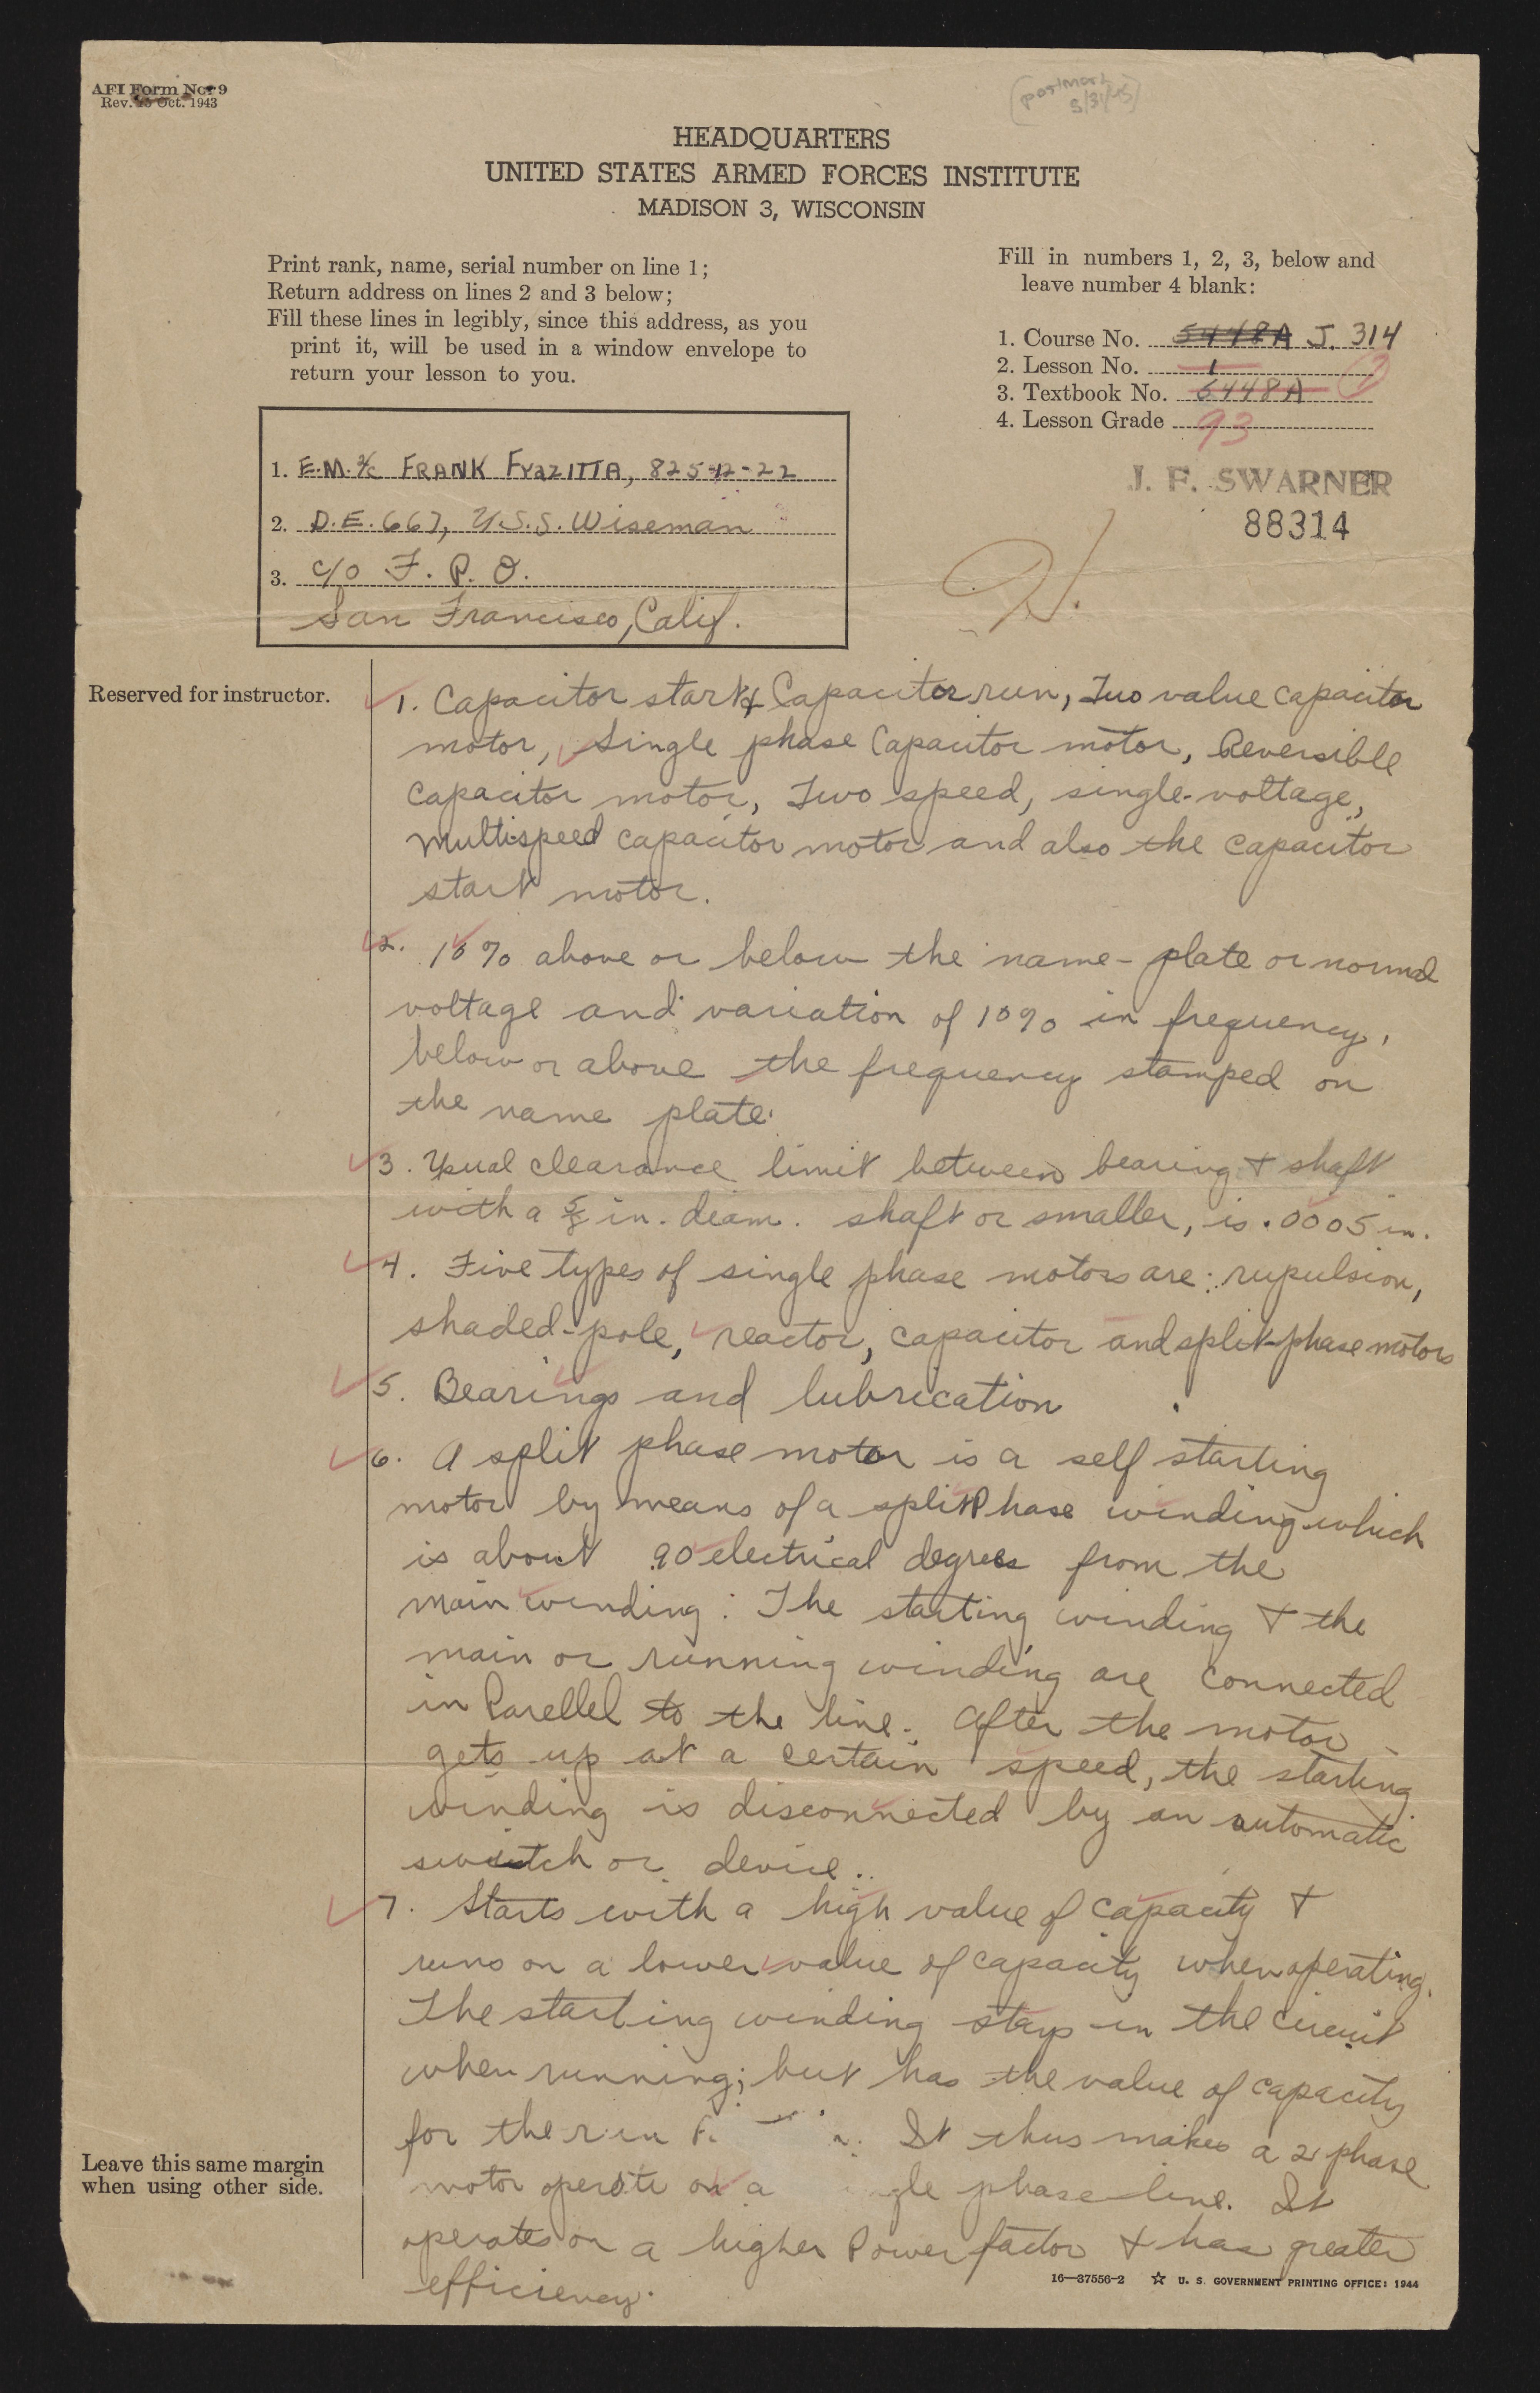 AFI Form No. 9
Rev. 15 Oct. 1943
(postmark
5/31/45)
HEADQUARTERS
UNITED STATES ARMED FORCES INSTITUTE
MADISON 3, WISCONSIN
Print rank, name, serial number on line 1;
Return address on lines 2 and 3 below;
Fill these lines in legibly, since this address, as you
print it, will be used in a window envelope to
return your lesson to you.
Fill in numbers 1, 2, 3, below and
leave number 4 blank:
1. Course No. 5448A J. 314
2. Lesson No. 1
3. Textbook No. 5448A
4. Lesson Grade 93
J. F. SWARNER
88314
1. E.M. 2/c FRANK 825-12-22
2. D.E. 667, U.S.S. Wiseman
3. c/o F. P. O.
San Francisco, Calif.
Reserved for instructor.
1. Capacitor start & Capacitor run, Two value capacitor
motor, Single phase Capacitor motor, Reversible
capacitor motor, Two speed, single-voltage,
multispeed capacitor motor and also the capacitor
start motor.
2. 10% above or below the name-plate or normal
voltage and variation of 10% in frequency,
below or above the frequency stamped on
the name plate.
3. Usual clearance limit between bearing & shaft
with a 5/8 in. diam. shaft or smaller, is .0005 in.
4. Five types of single phase motors are: rupulsion,
shaded-pole, reactor, capacitor and split-phase motors
5. Bearings and lubrication
6. A split phase motor is a self starting
motor by means of a split Phase winding which
is about 90 electrical degrees from the
main winding. The starting winding & the
main or running winding are connected
in Parellel to the line. After the motor
gets up at a certain speed, the starting
winding is disconnected by an automatic
switch or device.
7. Starts with a high value of capacity &
runs on a lower value of capacity when operating.
The starting winding stays in the circuit
when running; but has the value of capacity
for the run It thus makes a 2 phase
motor operate on a phase line. It
operates on a higher Power factor & has greater
efficiency.
Leave this same margin
when using other side.
16—37556-2 ☆ U. S. GOVERNMENT PRINTING OFFICE: 1944